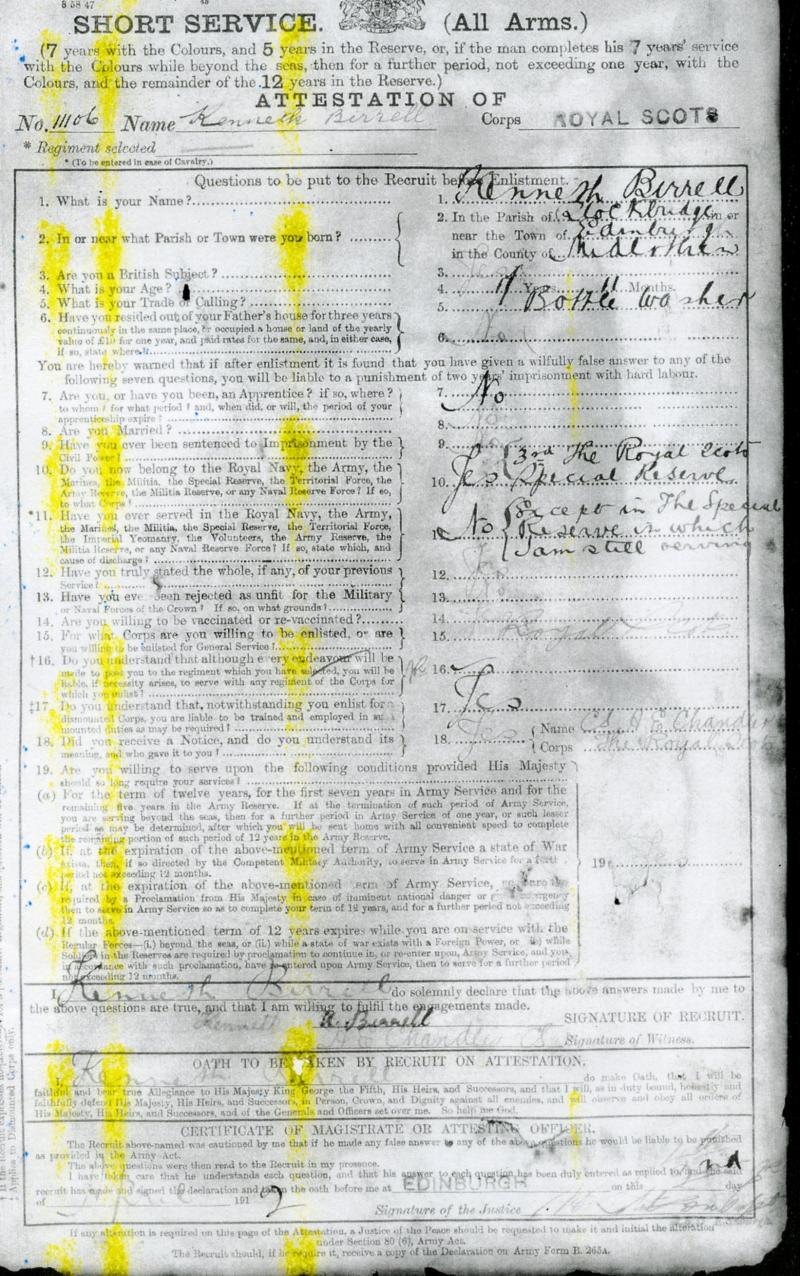 SHORT SERVICE. (All Arms.)
(7 years with the Colours, and 5 years in the Reserve, or, if the man completes his 7 years' service
with the Colours while beyond the seas, then for a further period, not exceeding one year, with the
Colours, and the remainder of the 12 years in the Reserve.)
ATTESTATION OF
No. 11106 Name Kenneth Birrell Corps ROYAL SCOTS
* Regiment selected
* (To be entered in case of Cavalry.)
Questions to be put to the Recruit before Enlistment.
1. What is your Name? 1. Kenneth Birrell
2. In or near what Parish or Town were you born? 2. In the Parish of Stockbridge in or
near the Town of Edinburgh
in the County of Midlothian
3. Are you a British Subject? 3.
4. What is your Age? 4. 17 Years 11 Months.
5. What is your Trade or Calling? 5. Bottle Washer
6. Have you resided out of your Father's house for three years 6. No
continuously in the same place, or occupied a house or land of the yearly
value of £10 for one year, and paid rates for the same, and, in either case,
if so, state where
You are hereby warned that if after enlistment it is found that you have given a wilfully false answer to any of the
following seven questions, you will be liable to a punishment of two years' imprisonment with hard labour.
7. Are you, or have you been, an Apprentice? if so, where? 7. No
to whom? for what period? and, when did, or will, the period of your
apprenticeship expire?
8. Are you Married? 8.
9. Have you ever been sentenced to Imprisonment by the 9.
Civil Power?
10. Do you now belong to the Royal Navy, the Army, the 10. Yes 3rd The Royal Scots
Marines, the Militia, the Special Reserve, the Territorial Force, the Special Reserve
Army Reserve, the Militia Reserve, or any Naval Reserve Force? If so,
to what Corps?
*11. Have you ever served in the Royal Navy, the Army, 11. No Except in The Special
the Marines, the Militia, the Special Reserve, the Territorial Force, Reserve in which
the Imperial Yeomanry, the Volunteers, the Army Reserve, the I am still serving
Militia Reserve, or any Naval Reserve Force? If so, state which, and
cause of discharge?
12. Have you truly stated the whole, if any, of your previous 12.
Service?
13. Have you ever been rejected as unfit for the Military 13.
or Naval Forces of the Crown? If so, on what grounds?
14. Are you willing to be vaccinated or re-vaccinated? 14.
15. For what Corps are you willing to be enlisted, or are 15. Royal
you willing to be enlisted for General Service?
†16. Do you understand that although every endeavour will be 16.
made to post you to the regiment which you have selected, you will be
liable, if necessity arises, to serve with any regiment of the Corps for
which you enlist?
‡17. Do you understand that, notwithstanding you enlist for 17. Yes
dismounted Corps, you are liable to be trained and employed in such
mounted duties as may be required?
18. Did you receive a Notice, and do you understand its 18. Yes Name Chandler
meaning, and who gave it to you? Corps The Royal Scots
19. Are you willing to serve upon the following conditions provided His Majesty
should so long require your services?
(a) For the term of twelve years, for the first seven years in Army Service and for the
remaining five years in the Army Reserve. If at the termination of such period of Army Service,
you are serving beyond the seas, then for a further period in Army Service of one year, or such lesser
period as may be determined, after which you will be sent home with all convenient speed to complete
the remaining portion of such period of 12 years in the Army Reserve.
(b) If, at the expiration of the above-mentioned term of Army Service a state of War
exists, then, if so directed by the Competent Military Authority, to serve in Army Service for a further
period not exceeding 12 months. 19
(c) If, at the expiration of the above-mentioned term of Army Service,
required by a Proclamation from His Majesty in case of imminent national danger or emergency
then to serve in Army Service so as to complete your term of 12 years, and for a further period not exceeding
12 months.
(d) If the above-mentioned term of 12 years expires while you are on service with the
Regular Forces—(i.) beyond the seas, or (ii.) while a state of war exists with a Foreign Power, or while
Soldiers in the Reserves are required by proclamation to continue in, or re-enter upon, Army Service, and you,
in accordance with such proclamation, have entered upon Army Service, then to serve for a further period
not exceeding 12 months.
I, Kenneth Birrell do solemnly declare that the above answers made by me to
the above questions are true, and that I am willing to fulfil the engagements made.
Kenneth Birrell SIGNATURE OF RECRUIT.
Chandler Signature of Witness.
OATH TO BE TAKEN BY RECRUIT ON ATTESTATION.
I, Kenneth do make Oath, that I will be
faithful and bear true Allegiance to His Majesty King George the Fifth, His Heirs, and Successors, and that I will, as in duty bound, honestly and
faithfully defend His Majesty, His Heirs, and Successors, in Person, Crown, and Dignity against all enemies, and will observe and obey all orders of
His Majesty, His Heirs, and Successors, and of the Generals and Officers set over me. So help me God.
CERTIFICATE OF MAGISTRATE OR ATTESTING OFFICER.
The Recruit above-named was cautioned by me that if he made any false answer to any of the above questions he would be liable to be punished
as provided in the Army Act.
The above questions were then read to the Recruit in my presence.
I have taken care he understands each question, and that his answer to each question has been duly entered as replied to, and the said
recruit has made and signed the declaration and taken the oath before me at EDINBURGH on this day
of 1912
Signature of the Justice
If any alteration is required on this page of the Attestation, a Justice of the Peace should be requested to make it and initial the alteration
under Section 80 (6), Army Act.
The Recruit should, if he require it, receive a copy of the Declaration on Army Form B. 265A.